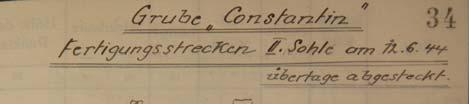 Grube „Constantin" 34
Fertigungsstrecken II. Sohle am 12.6.44
übertage abgesteckt.